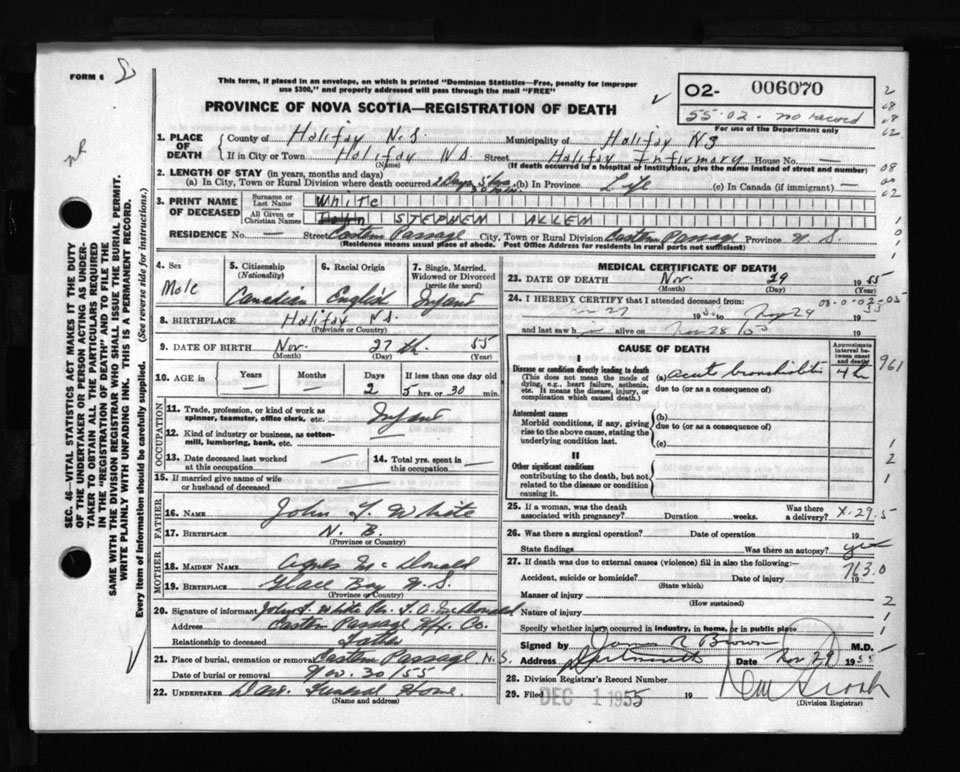 FORM 6
This form, if placed in an envelope, on which is printed "Dominion Statistics—Free, penalty for improper
use $300," and properly addressed will pass through the mail "FREE"
PROVINCE OF NOVA SCOTIA—REGISTRATION OF DEATH
02- 006070
55-02- no record
For use of the Department only
SEC. 46—VITAL STATISTICS ACT MAKES IT THE DUTY
OF THE UNDERTAKER OR PERSON ACTING AS UNDER-
TAKER TO OBTAIN ALL THE PARTICULARS REQUIRED
IN THE "REGISTRATION OF DEATH" AND TO FILE THE
SAME WITH THE DIVISION REGISTRAR WHO SHALL ISSUE THE BURIAL PERMIT.
WRITE PLAINLY WITH UNFADING INK. THIS IS A PERMANENT RECORD.
Every item of information should be carefully supplied. (See reverse side for instructions.)
1. PLACE OF DEATH County of Halifax N.S. Municipality of Halifax NS
If in City or Town Halifax N.S. Street Halifax Infirmary House No. —
(Name) (If death occurred in a hospital or institution, give the name instead of street and number)
2. LENGTH OF STAY (in years, months and days)
(a) In City, Town or Rural Division where death occurred 2 Days 5 hrs 30 min (b) In Province Life (c) In Canada (if immigrant) —
3. PRINT NAME OF DECEASED
Surname or Last Name White
All Given or Christian Names John STEPHEN ALLEN
RESIDENCE No. — Street Eastern Passage City, Town or Rural Division Eastern Passage Province N.S.
(Residence means usual place of abode. Post Office Address for residents in rural parts not sufficient)
4. Sex Male
5. Citizenship (Nationality) Canadian
6. Racial Origin English
7. Single, Married, Widowed or Divorced (write the word) Infant
8. BIRTHPLACE Halifax N.S.
(Province or Country)
9. DATE OF BIRTH Nov. 27th 55
(Month) (Day) (Year)
10. AGE in Years — Months — Days 2 If less than one day 5 hrs. or 30 min.
OCCUPATION
11. Trade, profession, or kind of work as spinner, teamster, office clerk, etc. Infant
12. Kind of industry or business, as cotton-mill, lumbering, bank, etc. —
13. Date deceased last worked at this occupation —
14. Total yrs. spent in this occupation —
15. If married give name of wife or husband of deceased —
FATHER
16. NAME John T. White
17. BIRTHPLACE N. B.
(Province or Country)
MOTHER
18. MAIDEN NAME Agnes McDonald
19. BIRTHPLACE Glace Bay N.S.
(Province or Country)
20. Signature of informant John T. White Per. McDonald
Address Eastern Passage Hfx. Co.
Relationship to deceased Father
21. Place of burial, cremation or removal Eastern Passage N.S.
Date of burial or removal Nov. 30/55
22. UNDERTAKER Dart. Funeral Home.
(Name and address)
MEDICAL CERTIFICATE OF DEATH
23. DATE OF DEATH Nov. 29 1955
(Month) (Day) (Year)
24. I HEREBY CERTIFY that I attended deceased from:
03-0-02-05
27 19 to Nov 29 1955
and last saw h alive on Nov 28 1955 19
CAUSE OF DEATH
Approximate interval between onset and death
I
Disease or condition directly leading to death (a) acute bronchiolitis 4 h
(This does not mean the mode of dying, e.g., heart failure, asthenia, etc. It means the disease, injury, or complication which caused death.)
due to (or as a consequence of)
Antecedent causes (b)
Morbid conditions, if any, giving rise to the above cause, stating the underlying condition last.
due to (or as a consequence of)
(c)
II
Other significant conditions contributing to the death, but not related to the disease or condition causing it.
961
25. If a woman, was the death associated with pregnancy? Duration weeks. Was there a delivery? X.29.5
26. Was there a surgical operation? Date of operation 19
State findings Was there an autopsy? yes
27. If death was due to external causes (violence) fill in also the following:—
763.0
Accident, suicide or homicide? Date of injury 19
(State which)
Manner of injury
(How sustained)
Nature of injury
Specify whether injury occurred in industry, in home, or in public place
Signed by R Brown M.D.
Address Dartmouth Date Nov 29 1955
28. Division Registrar's Record Number
29. Filed DEC 1 1955 19
(Division Registrar)